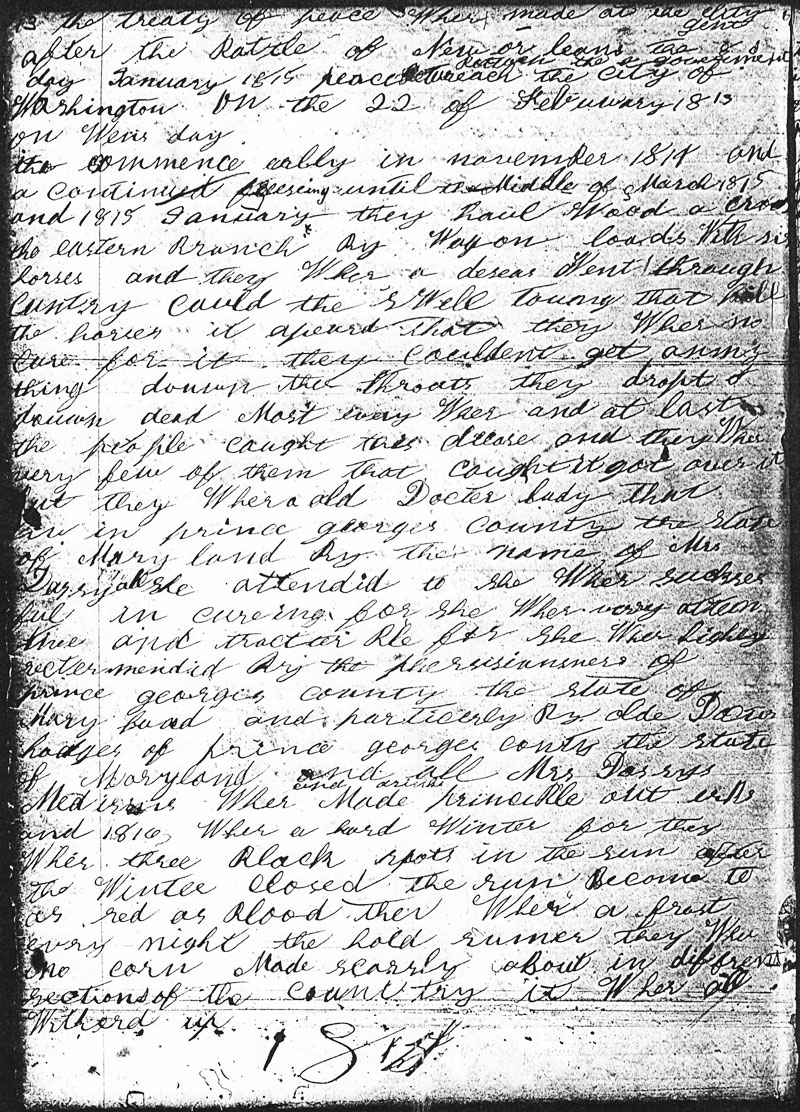 the treaty of peace Wher made at the City
gent
after the Battle of New or leans the 8
day January 1815 peace the City of
Washington On the 22 of Febuuary 1815
on Wens day
the commence eally in november 1814 and
a Continued freesing until the Middle of March 1815
and 1815 January they haul Wood a cross
the eastern Branch By Wagon loads With six
horses and they Wher a deseas Went through
Cuntry Could the SWell toung that kill
the horses it apeard that they Wher no
cure for it they couldent get anny
thing douwn the throats they dropt
douwn dead Most evry Wher and at last
the people caught this desase and they Wher
very few of them that caught it got over it
but they Wher a old Docter lady that
in prince georges County the State
of Mary land By the name of Mrs
she attendid to she Wher sucksес
ful in cureing for she Wher verry atten
tive and tracter ble for she Wher highly
recter mendid By the phersisionsners of
prince georges county the state of
Mary land and particerly By olde Docter
hodges of prince georges conty the state
of Maryland and all Mrs
and drinks
Medisins Wher Made princible out erbs
and 1816 Wher a hard Winter for they
Wher three Black spots in the sun after
the Winter Closed the sun Become to
as red as Blood ther Wher a frost
every night the hold sumer they Wher
no corn Made scarsly about in diffrent
sections of the Country it Wher all
Witherd up